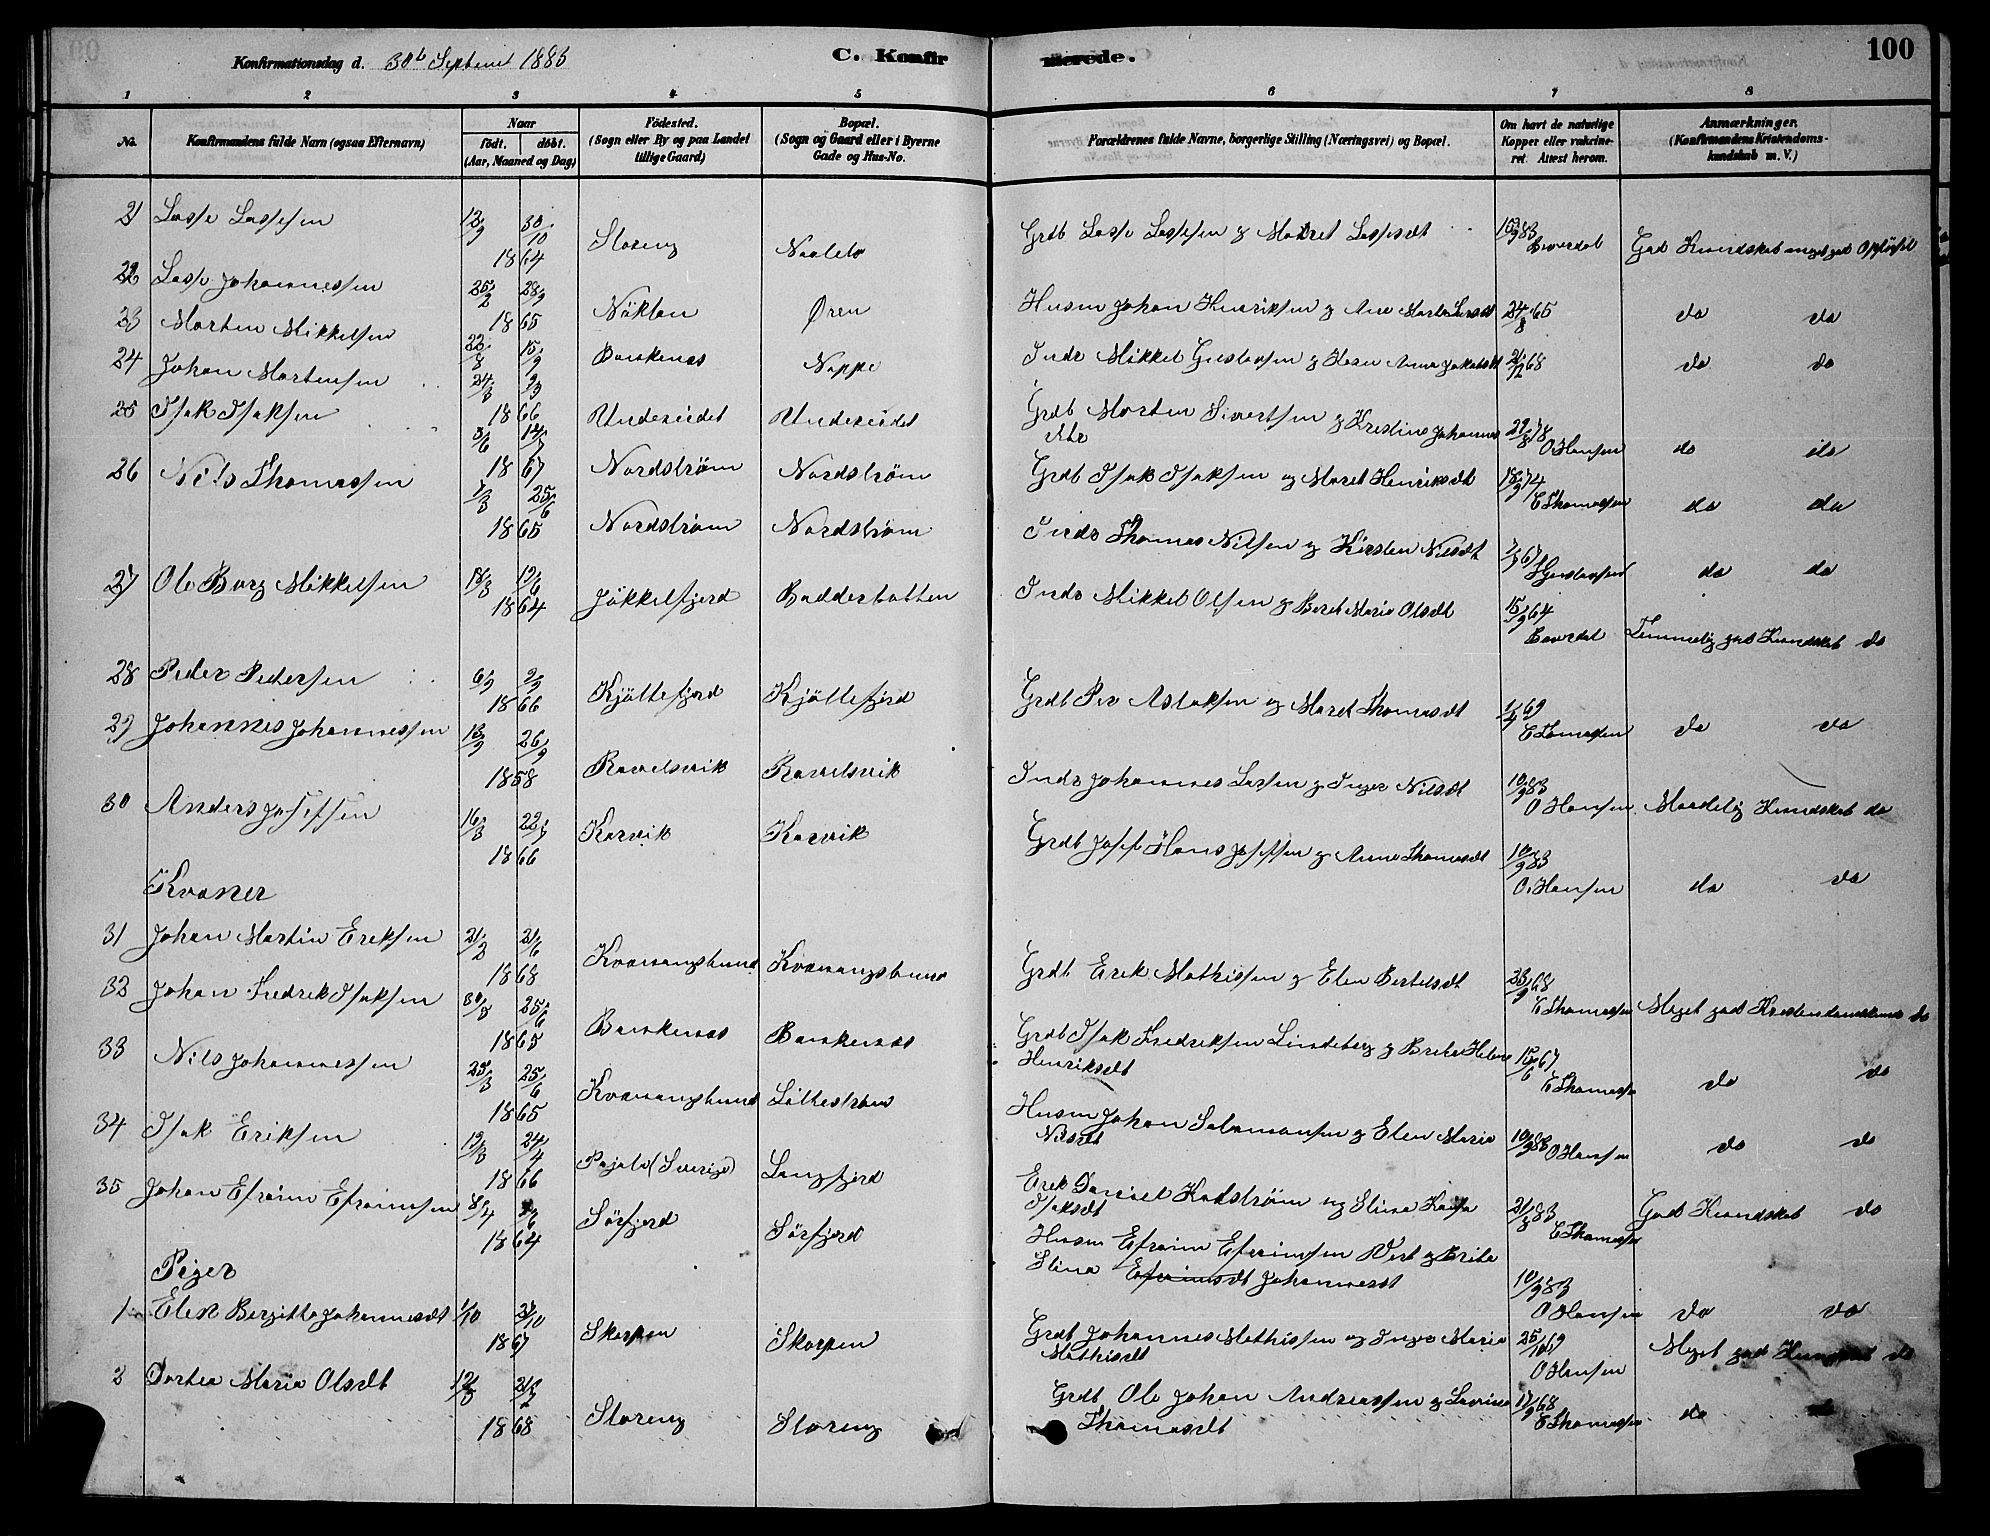 100
Konfirmationsdag d. 30te Septemr 1883 C. Konfirmerede.
1 2 3 4 5 6 7 8
No. Konfirmandens fulde Navn (ogsaa Efternavn) Naar født. døbt. (Aar, Maaned og Dag) Fødested. (Sogn eller By og paa Landet tillige Gaard) Bopæl. (Sogn og Gaard eller i Byerne Gade og Hus-No. Forældrenes fulde Navne, borgerlige Stilling (Næringsvei) og Bopæl. Om havt de naturlige Kopper eller vakcineret. Attest herom. Anmærkninger. (Konfirmandens Kristendomskundskab m. V.)
21 Lasse Lassesen 12/9 30/10 1864 Storeng Grdb Lasse Lassesen og Maret Lassesdt 10/9 83 Baverdal God Kundskab meget god Opførsel
22 Lasse Johannessen 25/2 28/9 1865 Nöklan Øren Husm Johan Henriksen og Ane Marta Larsdt 24/8 65 do do
23 Morten Mikkelsen 22/8 15/9 Baskenæs Noppe Indr Mikkel Gustavsen og Hosn Anna Jakobsdt 21/12 68 do do
24 Johan Mortensen 24/3 9/3 1866 Undereidet Undereidet Grdb Morten Sivertsen og Kristine Johannes dtr 29/8 78 O Hansen do do
25 Isak Isaksen 3/6 14/7 1867 Nordstrøm Nordstrøm Grdb Isak Isaksen og Maret Henriksdt 18/9 74 E Thomassen do do
26 Nils Thomassen 7/3 25/6 1865 Nordstrøm Nordstrøm Indr Thomas Nilsen og Kirsten Nilsdt 7/9 67 do do
27 Ole Borg Mikkelsen 18/3 19/6 1864 Jökkelfjord Badderbotten Indr Mikkel Olsen og Beret Maria Olsdt 15/9 64 Baverdal Temmelig god Kundskab do
28 Peder Pedersen 6/9 9/9 1866 Kjöllefjord Kjöllefjord Grdb Per Aslaksen og Maret Thomasdt 1/4 69 E Tomassen do do
29 Johannes Johannessen 13/9 26/9 1858 Ravelsvik Ravelsvik Indr Johannes Larsen og Inger Nilsdt 10/9 83 O Hansen Maadelig Kundskab do
30 Anders Josefsen 16/3 22/7 1866 Karvik Karvik Grdb Josef Hans Josefsen og Anne Thomasdt 10/9 83 O. Hansen do do
Kvæner
31 Johan Martin Eriksen 21/2 21/6 1868 Kvænangsbund Kvænangsbund Grdb Erik Mathissen og Elen Bertelsdt 23/9 68 E Thomassen Meget god Kristendomskunds do
32 Johan Fredrik Isaksen 30/3 25/6 1865 Baskenæs Baskenæs Grdb Isak Fredriksen Lindeberg og Brita Helene Henriksdt 15/6 67 E Thomassen do do
33 Nils Johannessen 29/3 25/6 1865 Kvænangsbund Lillestrøm Husm Johan Salamonsen og Elen Maria Nilsdt 10/9 83 O Hansen do do
34 Isak Eriksen 19/3 24/4 1866 Pajala (Sverige) Langfjord Erik Daniel Hadstrøm og Stina Kaisa Isaksdt 21/8 83 E Thomassen God Kundskab do
35 Johan Efraim Efraimsen 8/4 1864 Sörfjord Sörfjord Husm Efraim Efraimsen Wert og Brita Stina Efraimsdt Johannesdt 10/9 83 O Hansen do do
Piger
1 Elen Bergitte Johannesdt 1/10 21/10 1867 Skorpen Skorpen Grdb Johannes Mathissen og Inger Maria Mathisdt 25/10 69 O Hansen Meget god Kundskab do
2 Dortea Maria Olsdt 12/3 1868 Storeng Storeng Grdb Ole Johan Andreassen og Lavina Thomasdt 17/9 68 E Thomassen do do